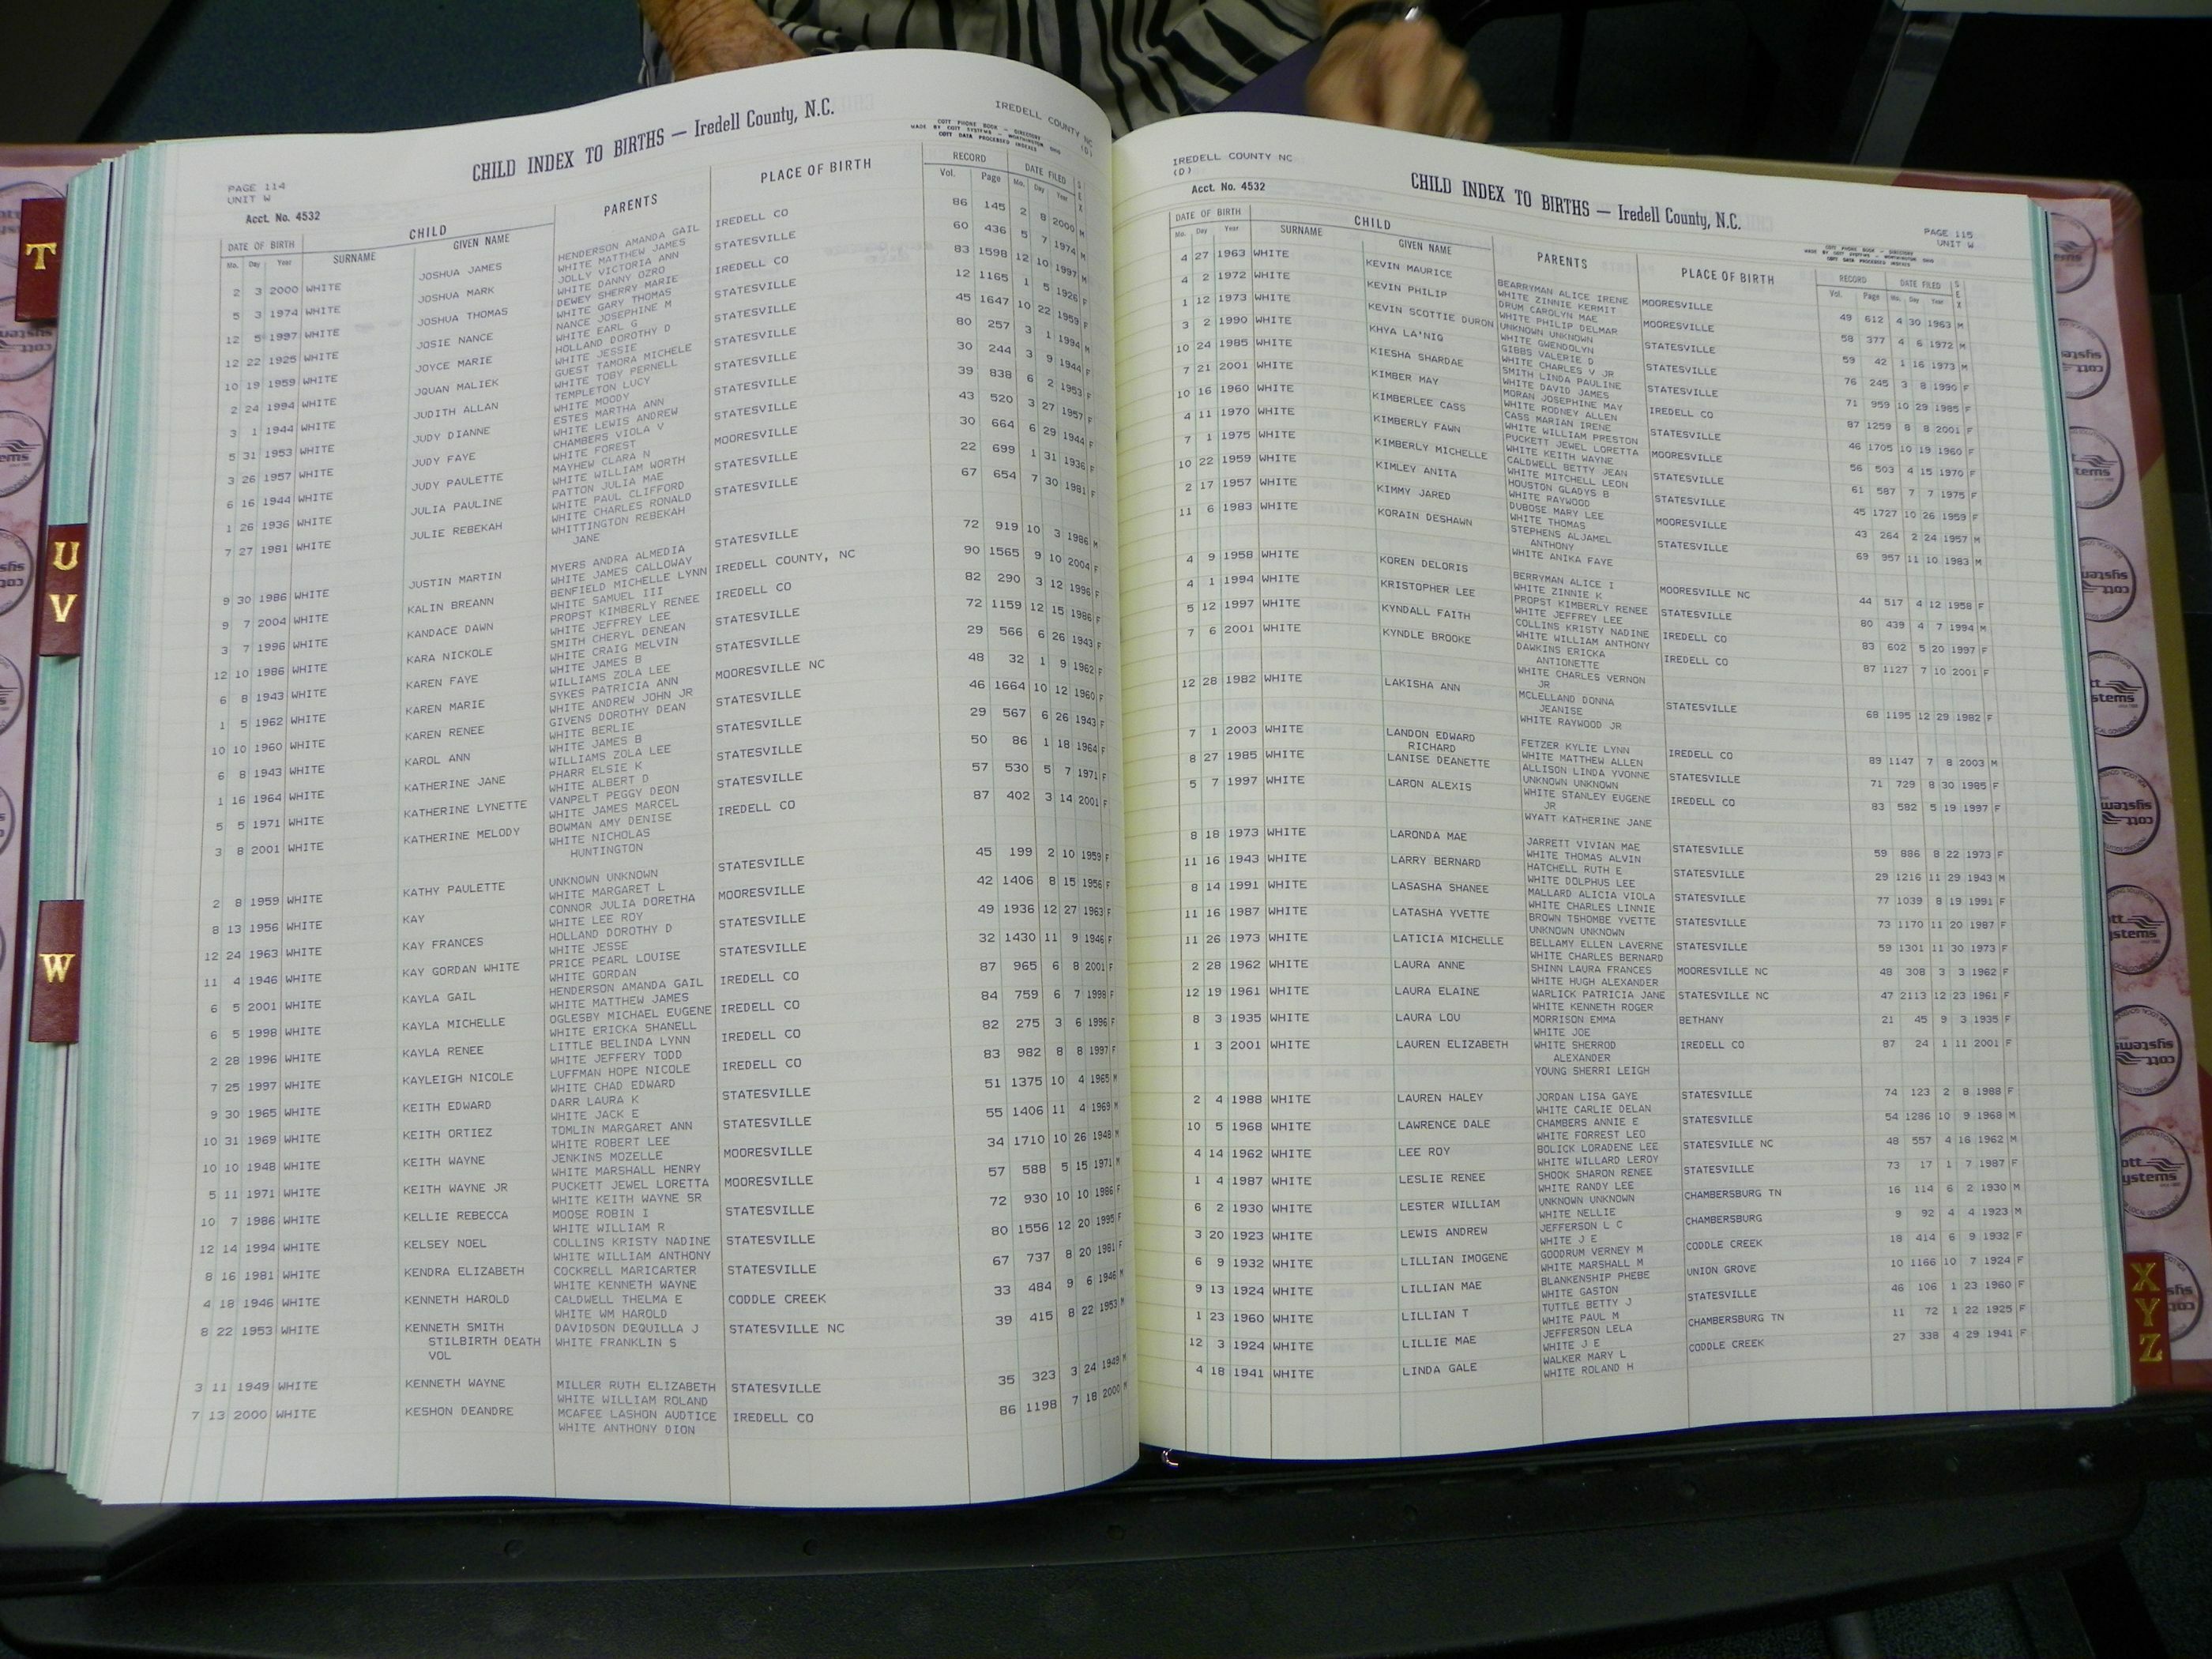 CHILD INDEX TO BIRTHS — Iredell County, N.C.
IREDELL COUNTY NC
(D)
COTT PHONE BOOK - DIRECTORY
MADE BY COTT SYSTEMS - WORTHINGTON, OHIO
COTT DATA PROCESSED INDEXES
PAGE 114
UNIT W
Acct. No. 4532
DATE OF BIRTH CHILD PARENTS PLACE OF BIRTH RECORD DATE FILED SEX
Mo. Day Year SURNAME GIVEN NAME Vol. Page Mo. Day Year
2 3 2000 WHITE JOSHUA JAMES HENDERSON AMANDA GAIL IREDELL CO 86 145 2 8 2000 M
WHITE MATTHEW JAMES
5 3 1974 WHITE JOSHUA MARK JOLLY VICTORIA ANN STATESVILLE 60 436 5 7 1974 M
WHITE DANNY OZRO
12 5 1997 WHITE JOSHUA THOMAS DEWEY SHERRY MARIE IREDELL CO 83 1598 12 10 1997 M
WHITE GARY THOMAS
12 22 1925 WHITE JOSIE NANCE NANCE JOSEPHINE M STATESVILLE 12 1165 1 5 1926 F
WHITE EARL G
10 19 1959 WHITE JOYCE MARIE HOLLAND DOROTHY D STATESVILLE 45 1647 10 22 1959 F
WHITE JESSIE
2 24 1994 WHITE JQUAN MALIEK GUEST TAMORA MICHELE STATESVILLE 80 257 3 1 1994 M
WHITE TOBY PERNELL
3 1 1944 WHITE JUDITH ALLAN TEMPLETON LUCY STATESVILLE 30 244 3 9 1944 F
WHITE MOODY
5 31 1953 WHITE JUDY DIANNE ESTES MARTHA ANN STATESVILLE 39 838 6 2 1953 F
WHITE LEWIS ANDREW
3 26 1957 WHITE JUDY FAYE CHAMBERS VIOLA V STATESVILLE 43 520 3 27 1957 F
WHITE FOREST
6 16 1944 WHITE JUDY PAULETTE MAYHEW CLARA N MOORESVILLE 30 664 6 29 1944 F
WHITE WILLIAM WORTH
1 26 1936 WHITE JULIA PAULINE PATTON JULIA MAE STATESVILLE 22 699 1 31 1936 F
WHITE PAUL CLIFFORD
7 27 1981 WHITE JULIE REBEKAH WHITE CHARLES RONALD STATESVILLE 67 654 7 30 1981 F
WHITTINGTON REBEKAH
JANE
9 30 1986 WHITE JUSTIN MARTIN MYERS ANDRA ALMEDIA STATESVILLE 72 919 10 3 1986 M
WHITE JAMES CALLOWAY
9 7 2004 WHITE KALIN BREANN BENFIELD MICHELLE LYNN IREDELL COUNTY, NC 90 1565 9 10 2004 F
WHITE SAMUEL III
3 7 1996 WHITE KANDACE DAWN PROPST KIMBERLY RENEE IREDELL CO 82 290 3 12 1996 F
WHITE JEFFREY LEE
12 10 1986 WHITE KARA NICKOLE SMITH CHERYL DENEAN STATESVILLE 72 1159 12 15 1986 F
WHITE CRAIG MELVIN
6 8 1943 WHITE KAREN FAYE WHITE JAMES B STATESVILLE 29 566 6 26 1943 F
WILLIAMS ZOLA LEE
1 5 1962 WHITE KAREN MARIE SYKES PATRICIA ANN MOORESVILLE NC 48 32 1 9 1962 F
WHITE ANDREW JOHN JR
10 10 1960 WHITE KAREN RENEE GIVENS DOROTHY DEAN STATESVILLE 46 1664 10 12 1960 F
WHITE BERLIE
6 8 1943 WHITE KAROL ANN WHITE JAMES B STATESVILLE 29 567 6 26 1943 F
WILLIAMS ZOLA LEE
1 16 1964 WHITE KATHERINE JANE PHARR ELSIE K STATESVILLE 50 86 1 18 1964 F
WHITE ALBERT D
5 5 1971 WHITE KATHERINE LYNETTE VANPELT PEGGY DEON STATESVILLE 57 530 5 7 1971 F
WHITE JAMES MARCEL
3 8 2001 WHITE KATHERINE MELODY BOWMAN AMY DENISE IREDELL CO 87 402 3 14 2001 F
WHITE NICHOLAS
HUNTINGTON
2 8 1959 WHITE KATHY PAULETTE UNKNOWN UNKNOWN STATESVILLE 45 199 2 10 1959 F
WHITE MARGARET L
8 13 1956 WHITE KAY CONNOR JULIA DORETHA MOORESVILLE 42 1406 8 15 1956 F
WHITE LEE ROY
12 24 1963 WHITE KAY FRANCES HOLLAND DOROTHY D STATESVILLE 49 1936 12 27 1963 F
WHITE JESSE
11 4 1946 WHITE KAY GORDAN WHITE PRICE PEARL LOUISE STATESVILLE 32 1430 11 9 1946 F
WHITE GORDAN
6 5 2001 WHITE KAYLA GAIL HENDERSON AMANDA GAIL IREDELL CO 87 965 6 8 2001 F
WHITE MATTHEW JAMES
6 5 1998 WHITE KAYLA MICHELLE OGLESBY MICHAEL EUGENE IREDELL CO 84 759 6 7 1998 F
WHITE ERICKA SHANELL
2 28 1996 WHITE KAYLA RENEE LITTLE BELINDA LYNN IREDELL CO 82 275 3 6 1996 F
WHITE JEFFERY TODD
7 25 1997 WHITE KAYLEIGH NICOLE LUFFMAN HOPE NICOLE IREDELL CO 83 982 8 8 1997 F
WHITE CHAD EDWARD
9 30 1965 WHITE KEITH EDWARD DARR LAURA K STATESVILLE 51 1375 10 4 1965 M
WHITE JACK E
10 31 1969 WHITE KEITH ORTIEZ TOMLIN MARGARET ANN STATESVILLE 55 1406 11 4 1969 M
WHITE ROBERT LEE
10 10 1948 WHITE KEITH WAYNE JENKINS MOZELLE MOORESVILLE 34 1710 10 26 1948 M
WHITE MARSHALL HENRY
5 11 1971 WHITE KEITH WAYNE JR PUCKETT JEWEL LORETTA MOORESVILLE 57 588 5 15 1971 M
WHITE KEITH WAYNE SR
10 7 1986 WHITE KELLIE REBECCA MOOSE ROBIN I STATESVILLE 72 930 10 10 1986 F
WHITE WILLIAM R
12 14 1994 WHITE KELSEY NOEL COLLINS KRISTY NADINE STATESVILLE 80 1556 12 20 1995 F
WHITE WILLIAM ANTHONY
8 16 1981 WHITE KENDRA ELIZABETH COCKRELL MARICARTER STATESVILLE 67 737 8 20 1981 F
WHITE KENNETH WAYNE
4 18 1946 WHITE KENNETH HAROLD CALDWELL THELMA E CODDLE CREEK 33 484 9 6 1946 M
WHITE WM HAROLD
8 22 1953 WHITE KENNETH SMITH DAVIDSON DEQUILLA J STATESVILLE NC 39 415 8 22 1953 M
STILBIRTH DEATH WHITE FRANKLIN S
VOL
3 11 1949 WHITE KENNETH WAYNE MILLER RUTH ELIZABETH STATESVILLE 35 323 3 24 1949 M
WHITE WILLIAM ROLAND
7 13 2000 WHITE KESHON DEANDRE MCAFEE LASHON AUDTICE IREDELL CO 86 1198 7 18 2000 M
WHITE ANTHONY DION
IREDELL COUNTY NC
(D)
Acct. No. 4532
CHILD INDEX TO BIRTHS — Iredell County, N.C.
PAGE 115
UNIT W
COTT PHONE BOOK - DIRECTORY
MADE BY COTT SYSTEMS - WORTHINGTON, OHIO
COTT DATA PROCESSED INDEXES
DATE OF BIRTH CHILD PARENTS PLACE OF BIRTH RECORD DATE FILED SEX
Mo. Day Year SURNAME GIVEN NAME Vol. Page Mo. Day Year
4 27 1963 WHITE KEVIN MAURICE BEARRYMAN ALICE IRENE MOORESVILLE 49 612 4 30 1963 M
WHITE ZINNIE KERMIT
4 2 1972 WHITE KEVIN PHILIP DRUM CAROLYN MAE MOORESVILLE 58 377 4 6 1972 M
WHITE PHILIP DELMAR
1 12 1973 WHITE KEVIN SCOTTIE DURON UNKNOWN UNKNOWN STATESVILLE 59 42 1 16 1973 M
WHITE GWENDOLYN
3 2 1990 WHITE KHYA LA'NIQ GIBBS VALERIE D STATESVILLE 76 245 3 8 1990 F
WHITE CHARLES V JR
10 24 1985 WHITE KIESHA SHARDAE SMITH LINDA PAULINE IREDELL CO 71 959 10 29 1985 F
WHITE DAVID JAMES
7 21 2001 WHITE KIMBER MAY MORAN JOSEPHINE MAY STATESVILLE 87 1259 8 8 2001 F
WHITE RODNEY ALLEN
10 16 1960 WHITE KIMBERLEE CASS CASS MARIAN IRENE MOORESVILLE 46 1705 10 19 1960 F
WHITE WILLIAM PRESTON
4 11 1970 WHITE KIMBERLY FAWN PUCKETT JEWEL LORETTA STATESVILLE 56 503 4 15 1970 F
WHITE KEITH WAYNE
7 1 1975 WHITE KIMBERLY MICHELLE CALDWELL BETTY JEAN STATESVILLE 61 587 7 7 1975 F
WHITE MITCHELL LEON
10 22 1959 WHITE KIMLEY ANITA HOUSTON GLADYS B MOORESVILLE 45 1727 10 26 1959 F
WHITE RAYWOOD
2 17 1957 WHITE KIMMY JARED DUBOSE MARY LEE STATESVILLE 43 264 2 24 1957 M
WHITE THOMAS
11 6 1983 WHITE KORAIN DESHAWN STEPHENS ALJAMEL 69 957 11 10 1983 M
ANTHONY
WHITE ANIKA FAYE
4 9 1958 WHITE KOREN DELORIS BERRYMAN ALICE I MOORESVILLE NC 44 517 4 12 1958 F
WHITE ZINNIE K
4 1 1994 WHITE KRISTOPHER LEE PROPST KIMBERLY RENEE STATESVILLE 80 439 4 7 1994 M
WHITE JEFFREY LEE
5 12 1997 WHITE KYNDALL FAITH COLLINS KRISTY NADINE IREDELL CO 83 602 5 20 1997 F
WHITE WILLIAM ANTHONY
7 6 2001 WHITE KYNDLE BROOKE DAWKINS ERICKA IREDELL CO 87 1127 7 10 2001 F
ANTIONETTE
WHITE CHARLES VERNON
JR
12 28 1982 WHITE LAKISHA ANN MCLELLAND DONNA STATESVILLE 68 1195 12 29 1982 F
JEANISE
WHITE RAYWOOD JR
7 1 2003 WHITE LANDON EDWARD FETZER KYLIE LYNN IREDELL CO 89 1147 7 8 2003 M
RICHARD WHITE MATTHEW ALLEN
8 27 1985 WHITE LANISE DEANETTE ALLISON LINDA YVONNE STATESVILLE 71 729 8 30 1985 F
UNKNOWN UNKNOWN
5 7 1997 WHITE LARON ALEXIS WHITE STANLEY EUGENE IREDELL CO 83 582 5 19 1997 F
JR
WYATT KATHERINE JANE
8 18 1973 WHITE LARONDA MAE JARRETT VIVIAN MAE STATESVILLE 59 886 8 22 1973 F
WHITE THOMAS ALVIN
11 16 1943 WHITE LARRY BERNARD HATCHELL RUTH E STATESVILLE 29 1216 11 29 1943 M
WHITE DOLPHUS LEE
8 14 1991 WHITE LASASHA SHANEE MALLARD ALICIA VIOLA STATESVILLE 77 1039 8 19 1991 F
WHITE CHARLES LINNIE
11 16 1987 WHITE LATASHA YVETTE BROWN TSHOMBE YVETTE STATESVILLE 73 1170 11 20 1987 F
UNKNOWN UNKNOWN
11 26 1973 WHITE LATICIA MICHELLE BELLAMY ELLEN LAVERNE STATESVILLE 59 1301 11 30 1973 F
WHITE CHARLES BERNARD
2 28 1962 WHITE LAURA ANNE SHINN LAURA FRANCES MOORESVILLE NC 48 308 3 3 1962 F
WHITE HUGH ALEXANDER
12 19 1961 WHITE LAURA ELAINE WARLICK PATRICIA JANE STATESVILLE NC 47 2113 12 23 1961 F
WHITE KENNETH ROGER
8 3 1935 WHITE LAURA LOU MORRISON EMMA BETHANY 21 45 9 3 1935 F
WHITE JOE
1 3 2001 WHITE LAUREN ELIZABETH WHITE SHERROD IREDELL CO 87 24 1 11 2001 F
ALEXANDER
YOUNG SHERRI LEIGH
2 4 1988 WHITE LAUREN HALEY JORDAN LISA GAYE STATESVILLE 74 123 2 8 1988 F
WHITE CARLIE DELAN
10 5 1968 WHITE LAWRENCE DALE CHAMBERS ANNIE E STATESVILLE 54 1286 10 9 1968 M
WHITE FORREST LEO
4 14 1962 WHITE LEE ROY BOLICK LORADENE LEE STATESVILLE NC 48 557 4 16 1962 M
WHITE WILLARD LEROY
1 4 1987 WHITE LESLIE RENEE SHOOK SHARON RENEE STATESVILLE 73 17 1 7 1987 F
WHITE RANDY LEE
6 2 1930 WHITE LESTER WILLIAM UNKNOWN UNKNOWN CHAMBERSBURG TN 16 114 6 2 1930 M
WHITE NELLIE
3 20 1923 WHITE LEWIS ANDREW JEFFERSON L C CHAMBERSBURG 9 92 4 4 1923 M
WHITE J E
6 9 1932 WHITE LILLIAN IMOGENE GOODRUM VERNEY M CODDLE CREEK 18 414 6 9 1932 F
WHITE MARSHALL M
9 13 1924 WHITE LILLIAN MAE BLANKENSHIP PHEBE UNION GROVE 10 1166 10 7 1924 F
WHITE GASTON
1 23 1960 WHITE LILLIAN T TUTTLE BETTY J STATESVILLE 46 106 1 23 1960 F
WHITE PAUL M
12 3 1924 WHITE LILLIE MAE JEFFERSON LELA CHAMBERSBURG TN 11 72 1 22 1925 F
WHITE J E
4 18 1941 WHITE LINDA GALE WALKER MARY L CODDLE CREEK 27 338 4 29 1941 F
WHITE ROLAND H
T
U
V
W
X
Y
Z
cott
systems